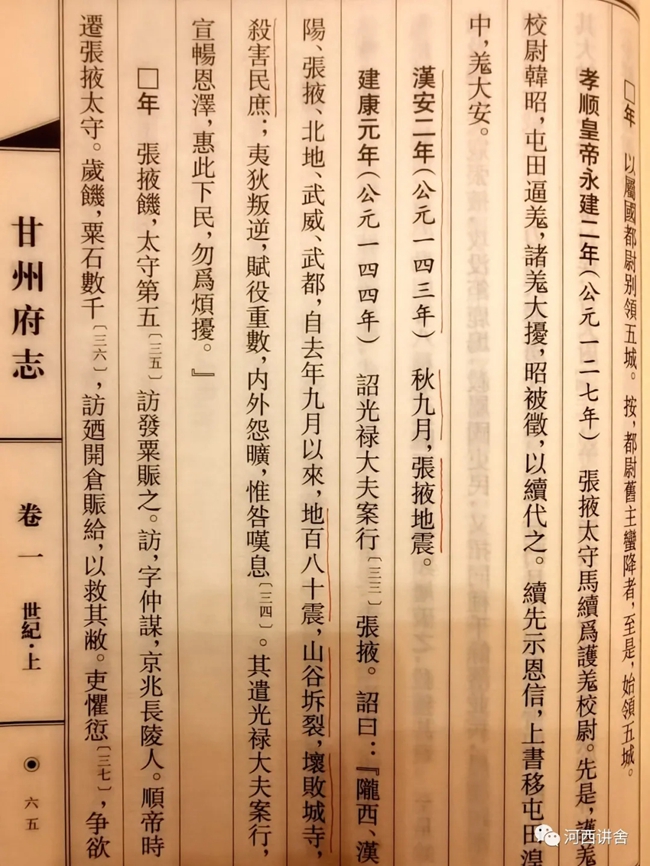 □年　以屬國都尉别領五城。按，都尉舊主蠻降者，至是，始領五城。
孝順皇帝永建二年（公元一二七年）　張掖太守馬續爲護羗校尉。先是，護羗
校尉韓昭，屯田逼羗，諸羗大擾，昭被徵，以續代之。續先示恩信，上書移屯田湟
中，羗大安。
漢安二年（公元一四三年）　秋九月，張掖地震。
建康元年（公元一四四年）　詔光禄大夫案行〔三三〕張掖。詔曰：『隴西、漢
陽、張掖、北地、武威、武都，自去年九月以來，地百八十震，山谷坼裂，壞敗城寺，
殺害民庶；夷狄叛逆，賦役重數，内外怨曠，惟咎嘆息〔三四〕。其遣光禄大夫案行，
宣暢恩澤，惠此下民，勿爲煩擾。』
□年　張掖饑，太守第五〔三五〕訪發粟賑之。訪，字仲謀，京兆長陵人。順帝時
遷張掖太守。歲饑，粟石數千〔三六〕，訪廼開倉賑給，以救其敝。吏懼愆〔三七〕，争欲
甘州府志
卷一　世紀·上
六五
河西讲舍